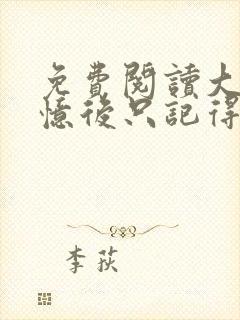 免費閱讀大
憶後只記得
李荻